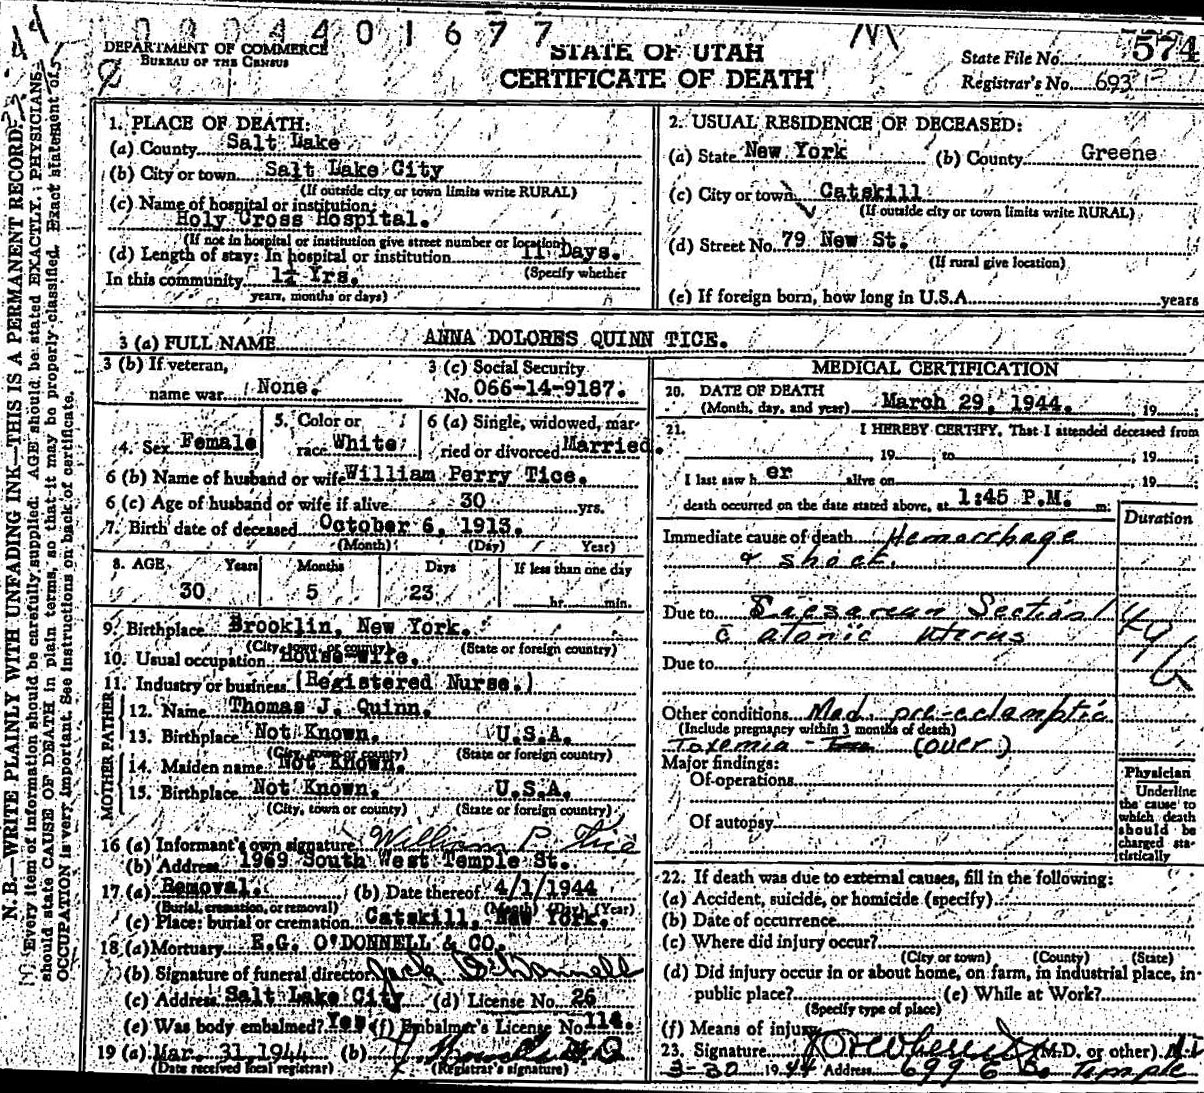 0904401677
DEPARTMENT OF COMMERCE
BUREAU OF THE CENSUS
STATE OF UTAH
CERTIFICATE OF DEATH
State File No. 574
Registrar's No. 693
N. B.—WRITE PLAINLY WITH UNFADING INK—THIS IS A PERMANENT RECORD
Every item of information should be carefully supplied. AGE should be stated EXACTLY. PHYSICIANS
should state CAUSE OF DEATH in plain terms, so that it may be properly classified. Exact statement of
OCCUPATION is very important. See instructions on back of certificate.
1. PLACE OF DEATH:
(a) County Salt Lake
(b) City or town Salt Lake City
(If outside city or town limits write RURAL)
(c) Name of hospital or institution:
Holy Cross Hospital.
(If not in hospital or institution give street number or location)
(d) Length of stay: In hospital or institution 11 Days.
(Specify whether
In this community 1¼ Yrs.
years, months or days)
2. USUAL RESIDENCE OF DECEASED:
(a) State New York (b) County Greene
(c) City or town Catskill
(If outside city or town limits write RURAL)
(d) Street No. 79 New St.
(If rural give location)
(e) If foreign born, how long in U.S.A. years
3 (a) FULL NAME ANNA DOLORES QUINN TICE.
3 (b) If veteran,
name war None.
3 (c) Social Security
No. 066-14-9187.
4. Sex Female
5. Color or
race White
6 (a) Single, widowed, mar-
ried or divorced Married.
6 (b) Name of husband or wife William Perry Tice.
6 (c) Age of husband or wife if alive 30 yrs.
7. Birth date of deceased October 6, 1913.
(Month) (Day) Year)
8. AGE Years Months Days If less than one day
30 5 23 hr. min.
9. Birthplace Brooklin, New York.
(City, town, or county) (State or foreign country)
10. Usual occupation House-wife.
11. Industry or business (Registered Nurse.)
FATHER
12. Name Thomas J. Quinn.
13. Birthplace Not Known. U.S.A.
(City, town or county) (State or foreign country)
MOTHER
14. Maiden name Not Known.
15. Birthplace Not Known. U.S.A.
(City, town or county) (State or foreign country)
16 (a) Informant's own signature William P. Tice
(b) Address 1969 South West Temple St.
17 (a) Removal. (b) Date thereof 4/1/1944
(Burial, cremation, or removal) (Month) (Day) (Year)
(c) Place: burial or cremation Catskill, New York.
18 (a) Mortuary E.G. O'DONNELL & CO.
(b) Signature of funeral director Jack O'Donnell
(c) Address Salt Lake City (d) License No. 26
(e) Was body embalmed? Yes (f) Embalmer's License No. 114.
19 (a) Mar. 31, 1944 (b)
(Date received local registrar) (Registrar's signature)
MEDICAL CERTIFICATION
20. DATE OF DEATH
(Month, day, and year) March 29, 1944. , 19
21. I HEREBY CERTIFY, That I attended deceased from
, 19 , to , 19
I last saw h er alive on , 19
death occurred on the date stated above, at 1:45 P.M. m.
Duration
Immediate cause of death Hemorrhage
& shock.
Due to Caesarean Section
c̄ atonic uterus
Due to
Other conditions Mod. pre-eclamptic
(Include pregnancy within 3 months of death)
Toxemia - (over)
Major findings:
Of operations
Of autopsy
Physician
Underline
the cause to
which death
should be
charged sta-
tistically
22. If death was due to external causes, fill in the following:
(a) Accident, suicide, or homicide (specify)
(b) Date of occurrence
(c) Where did injury occur?
(City or town) (County) (State)
(d) Did injury occur in or about home, on farm, in industrial place, in
public place? (e) While at Work?
(Specify type of place)
(f) Means of injury
23. Signature (M.D. or other) M.D.
3-30 1944 Address 699 E So Temple